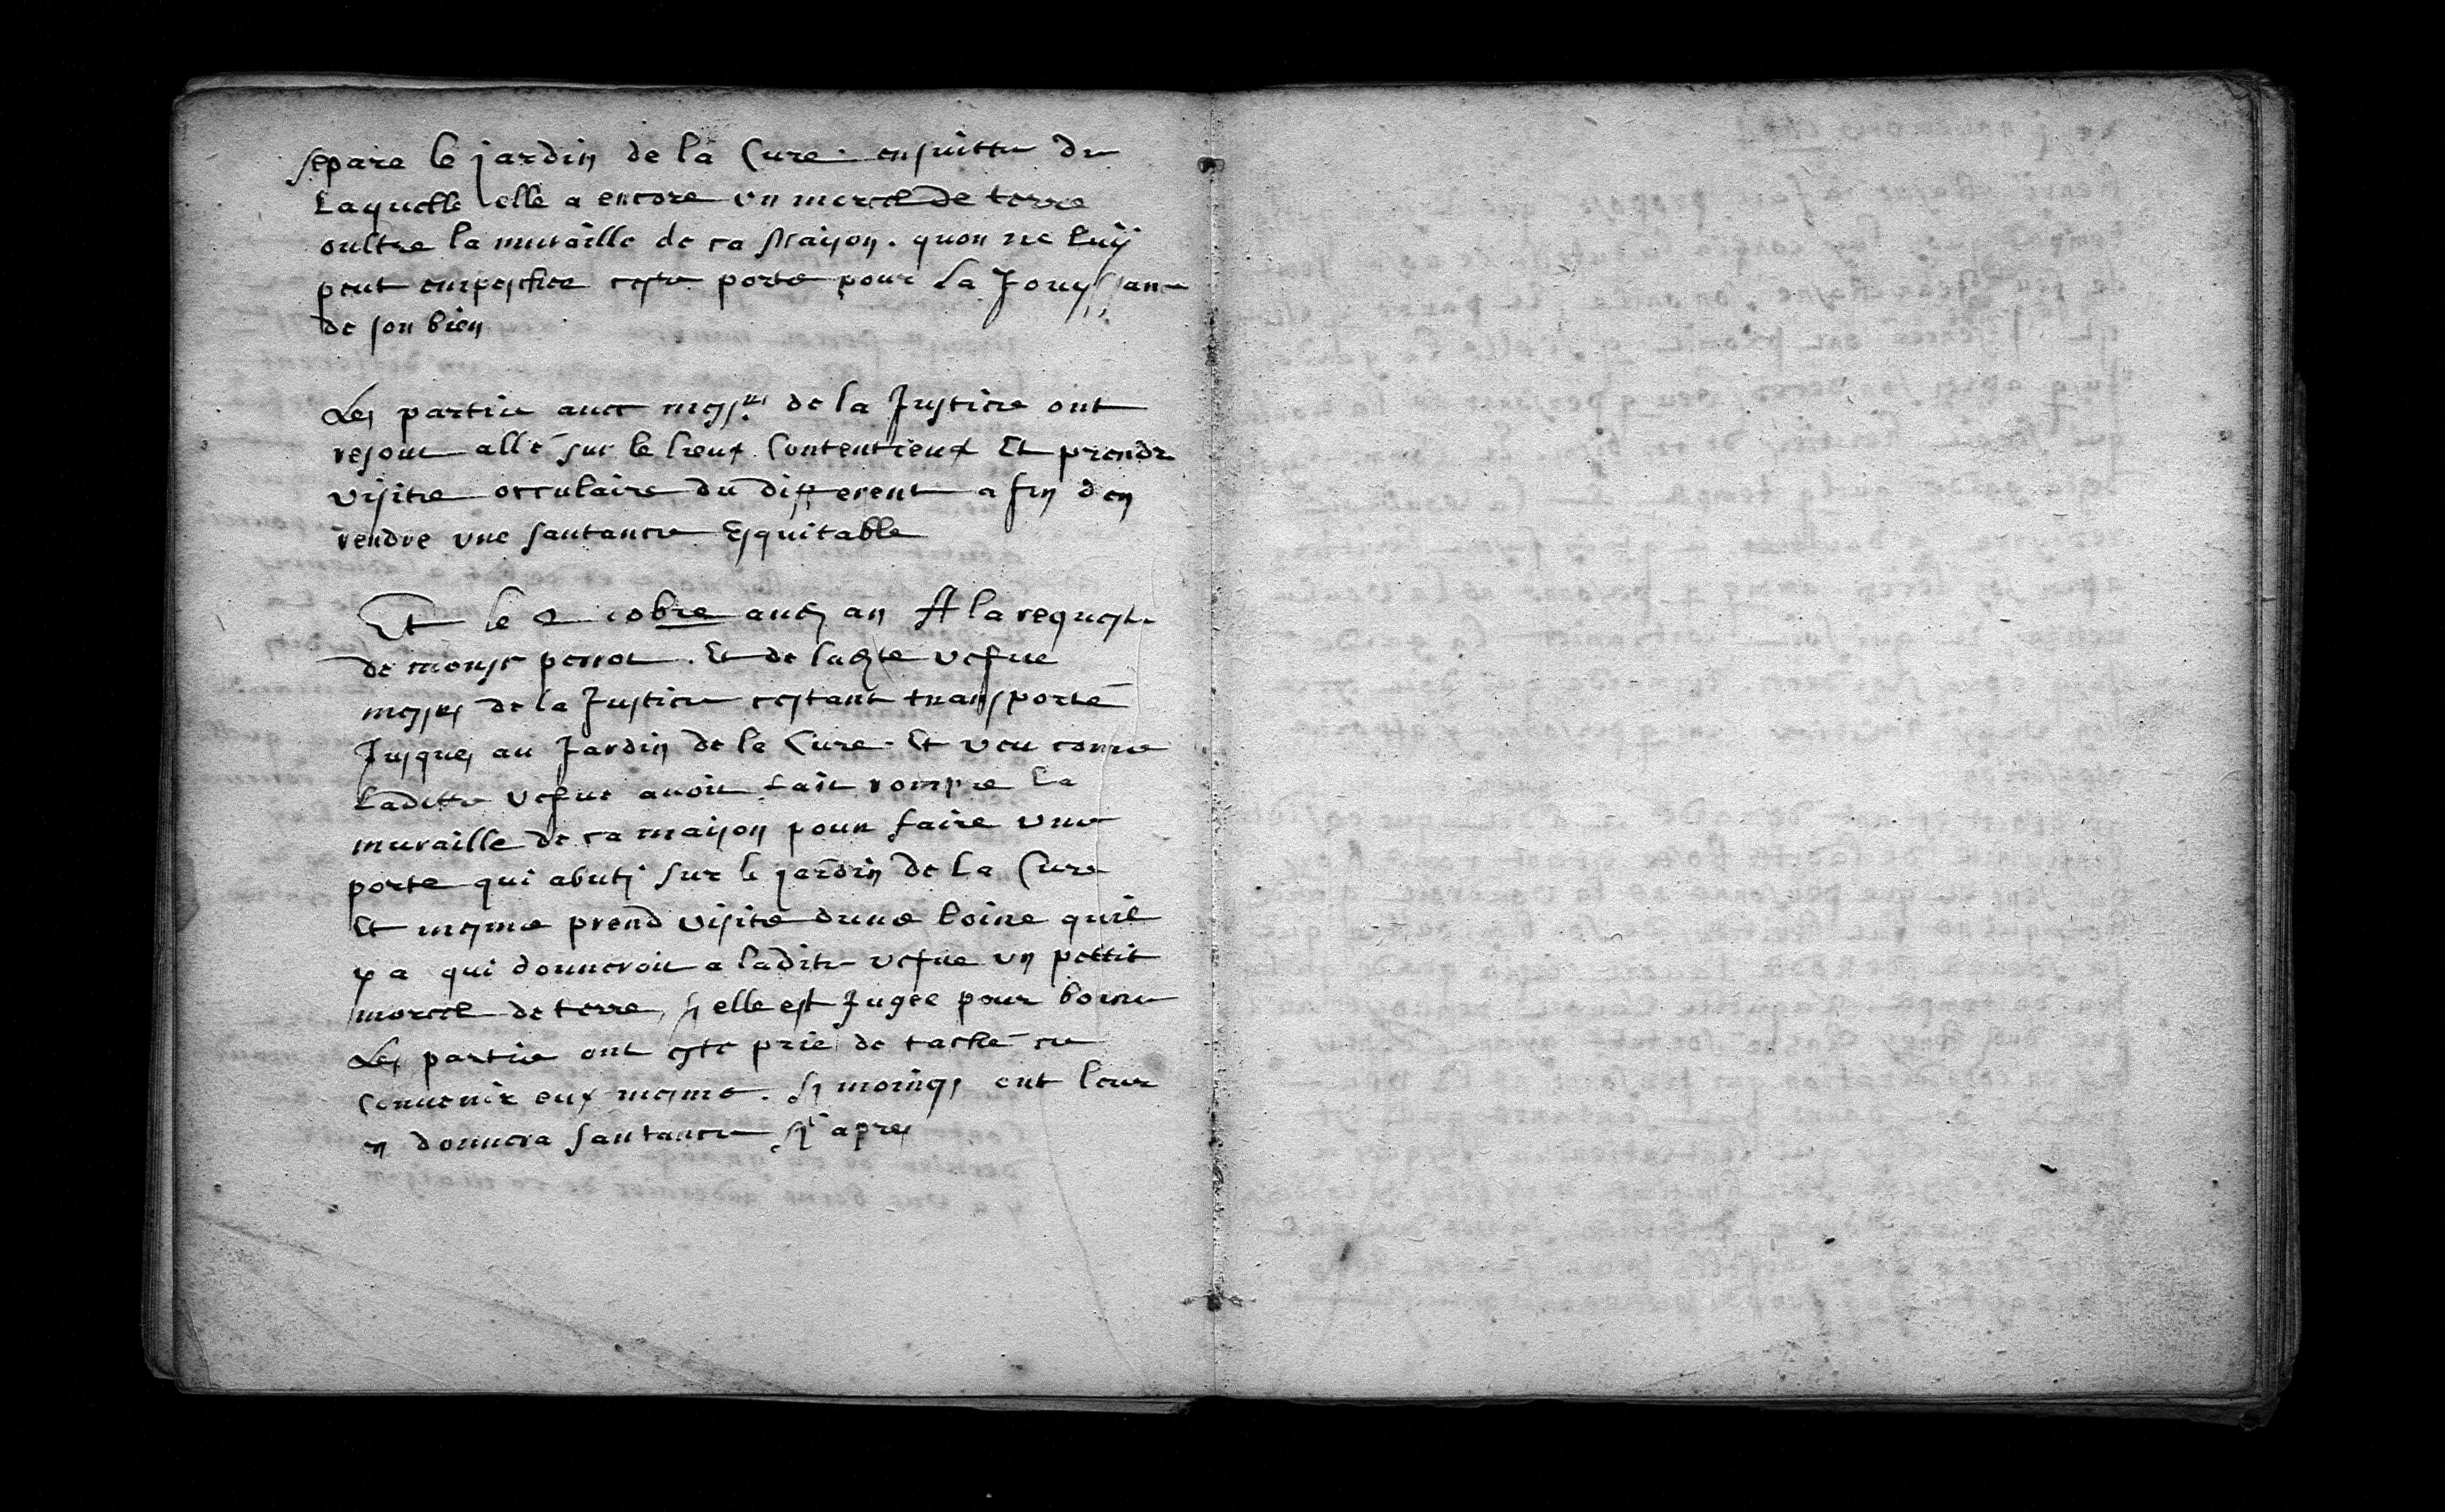 separe le jardin de la Cure. ensuitte de
Laquelle elle a encore un morcel de terre
oultre la muraille de ca Maison. quon ne luÿ
peut empescher ceste porte pour La Jouyssance
de son bien
Les partie auec mess.rs de la Justice ont
resout allé sur le lieux Contentieux Et prendre
visitte occulaire du different afin den
rendre une santance Esquitable
Et le 2 10bre audj an A la requeste
de monsr perrot. Et de ladte vefue
messrs de la Justice estant transporté
Jusques au Jardin de la Cure. Et veu comme
Laditte vefue auoit fait rompre La
muraille de ca maison pour faire une
porte qui abuts sur le jardin de La Cure
Et mesme prend visite dune boine quil
y a qui donneroit a ladite vefue un pettit
morcel de terre, sj elle est Jugee pour boine
Les partie ont esté prié de taché ce
Conuenir eux mesme. Sj moings ont leur
en donnera santance sj apres